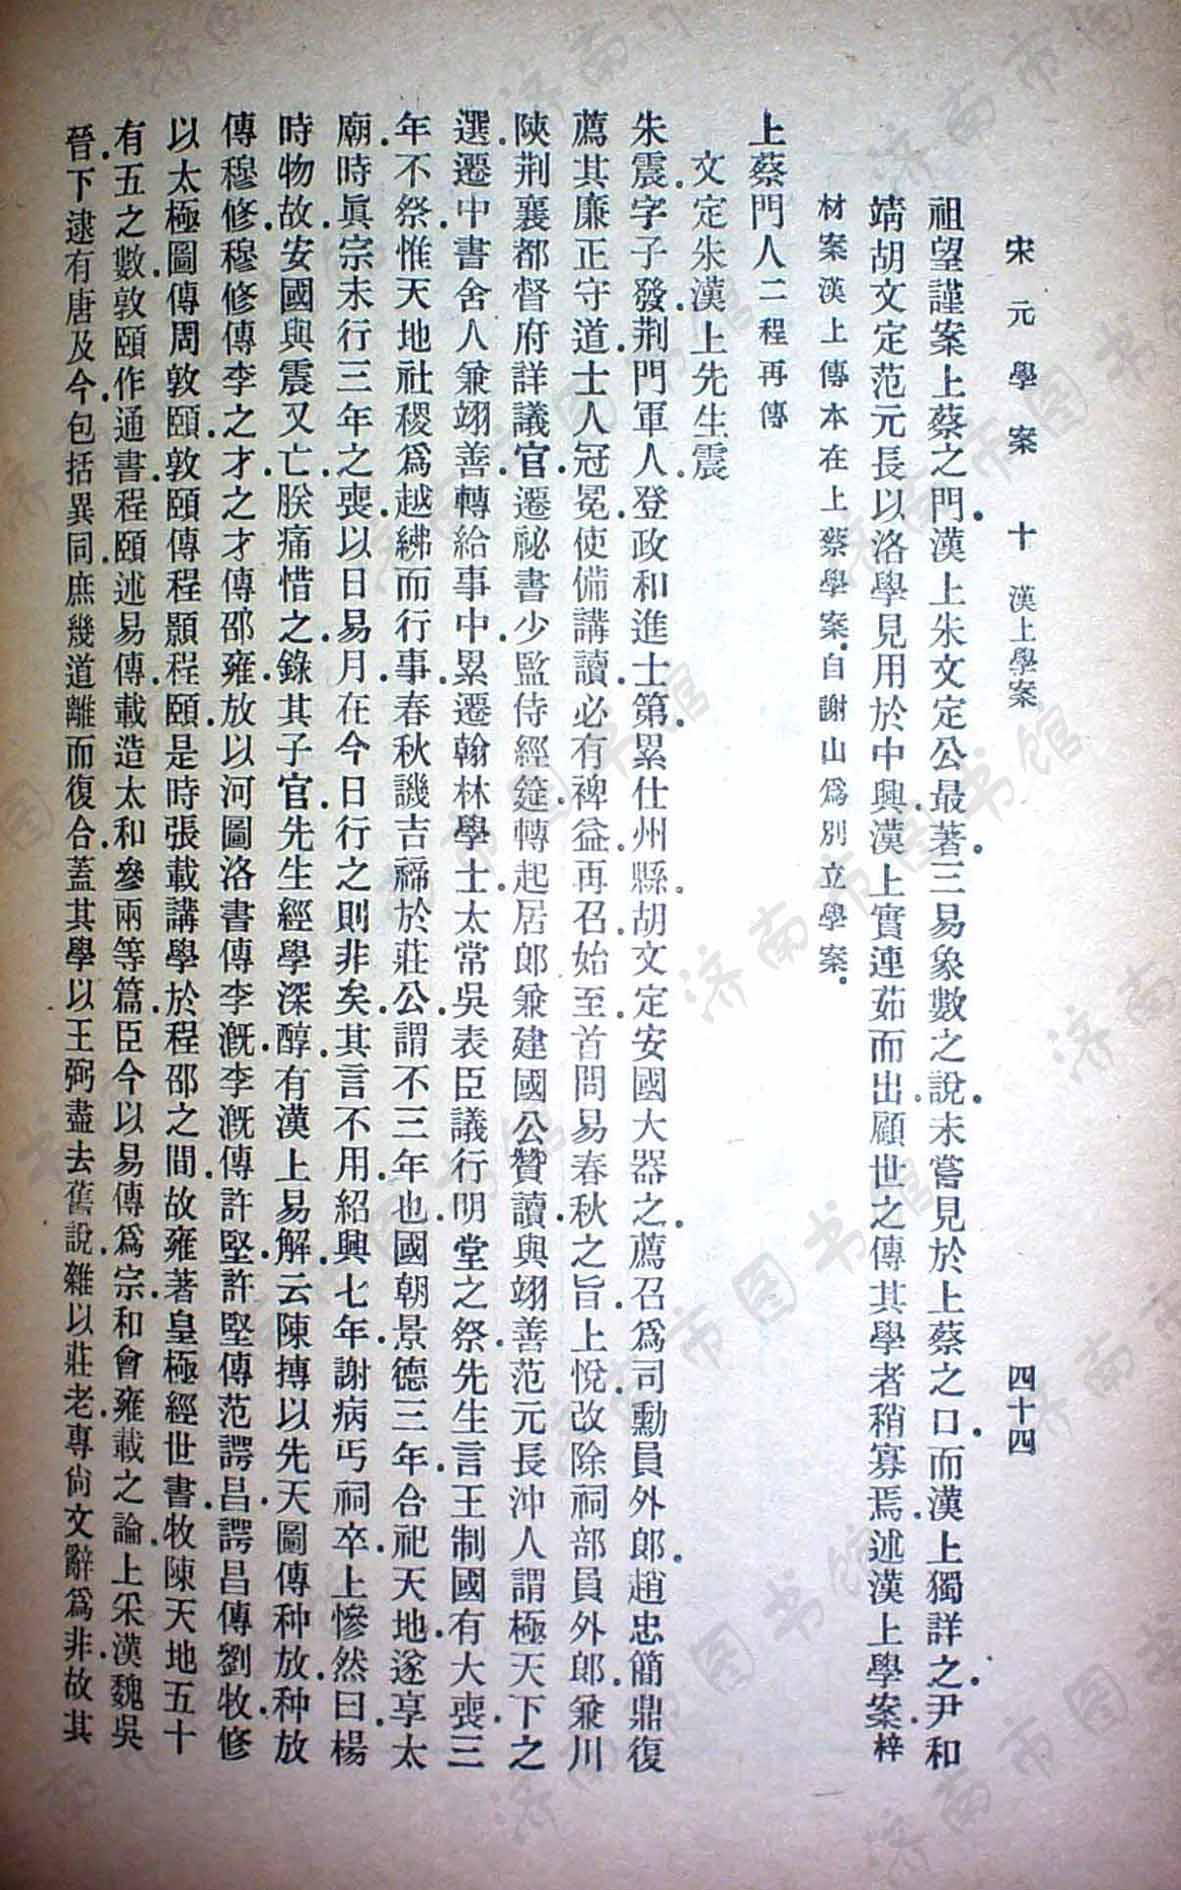 宋元學案 十 漢上學案 四十四
祖望謹案上蔡之門漢上朱文定公最著三易象數之說未嘗見於上蔡之口而漢上獨詳之尹和
靖胡文定范元長以洛學見用於中興漢上實連茹而出顧世之傳其學者稍寡焉述漢上學案梓
材案漢上傳本在上蔡學案自謝山爲別立學案
上蔡門人二程再傳
文定朱漢上先生震
朱震字子發荆門軍人登政和進士第累仕州縣胡文定安國大器之薦召爲司勳員外郎趙忠簡鼎復
薦其廉正守道士人冠冕使備講讀必有裨益再召始至首問易春秋之旨上悅改除祠部員外郎兼川
陝荆襄都督府詳議官遷祕書少監侍經筵轉起居郎兼建國公贊讀與翊善范元長沖人謂極天下之
選遷中書舍人兼翊善轉給事中累遷翰林學士太常吳表臣議行明堂之祭先生言王制國有大喪三
年不祭惟天地社稷爲越紼而行事春秋譏吉禘於莊公謂不三年也國朝景德三年合祀天地遂享太
廟時眞宗未行三年之喪以日易月在今日行之則非矣其言不用紹興七年謝病丐祠卒上慘然曰楊
時物故安國與震又亡朕痛惜之錄其子官先生經學深醇有漢上易解云陳摶以先天圖傳种放种放
傳穆修穆修傳李之才之才傳邵雍放以河圖洛書傳李漑李漑傳許堅許堅傳范諤昌諤昌傳劉牧修
以太極圖傳周敦頤敦頤傳程顥程頤是時張載講學於程邵之間故雍著皇極經世書牧陳天地五十
有五之數敦頤作通書程頤述易傳載造太和參兩等篇臣今以易傳爲宗和會雍載之論上采漢魏吳
晉下逮有唐及今包括異同庶幾道離而復合蓋其學以王弼盡去舊說雜以莊老專尙文辭爲非故其
济南市图书馆